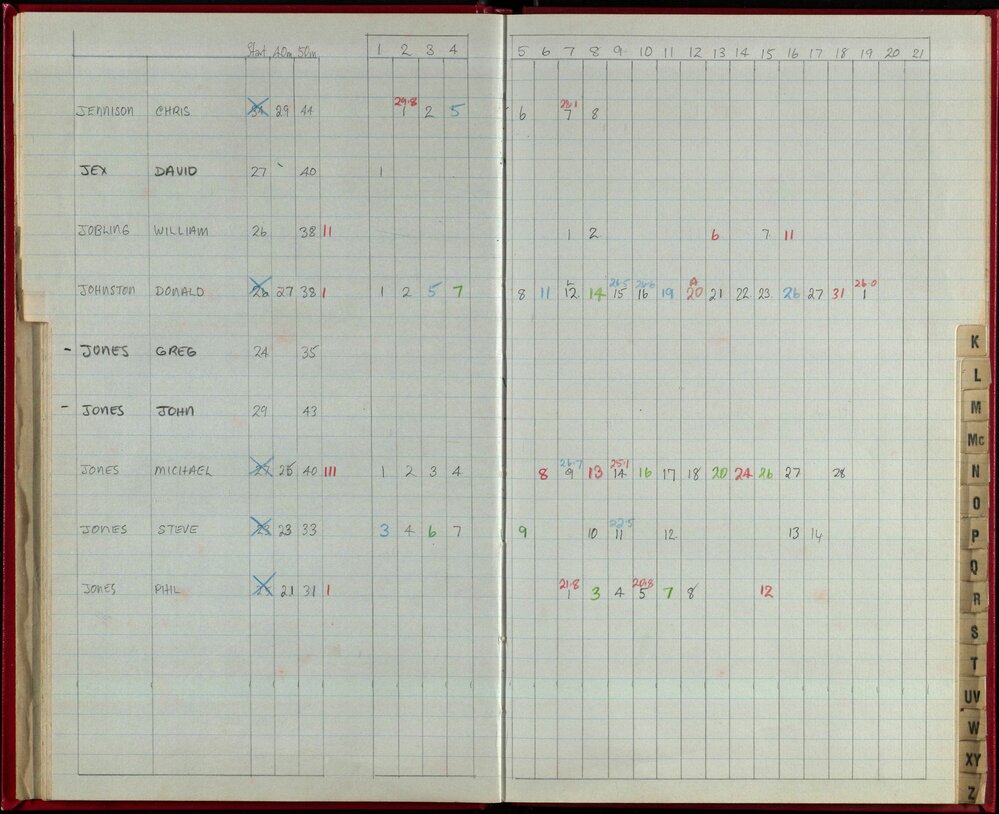 Start 40m 50m 1 2 3 4 5 6 7 8 9 10 11 12 13 14 15 16 17 18 19 20 21
29.8 28.1
JENNISON CHRIS 29 44 1 2 5 6 7 8
JEX DAVID 27 40 1
JOBLING WILLIAM 26 38 11 1 2 6 7 11
L 26.5 26.6 A 26.0
JOHNSTON DONALD 26 27 38 1 1 2 5 7 8 11 12 14 15 16 19 20 21 22 23 26 27 31 1
- JONES GREG 24 35
- JONES JOHN 29 43
26.7 25.1
JONES MICHAEL 27 25 40 111 1 2 3 4 8 9 13 14 16 17 18 20 24 26 27 28
22.5
JONES STEVE 23 23 33 3 4 6 7 9 10 11 12 13 14
21.8 20.8
JONES PHIL 21 31 1 1 3 4 5 7 8 12
K
L
M
Mc
N
O
P
Q
R
S
T
UV
W
XY
Z